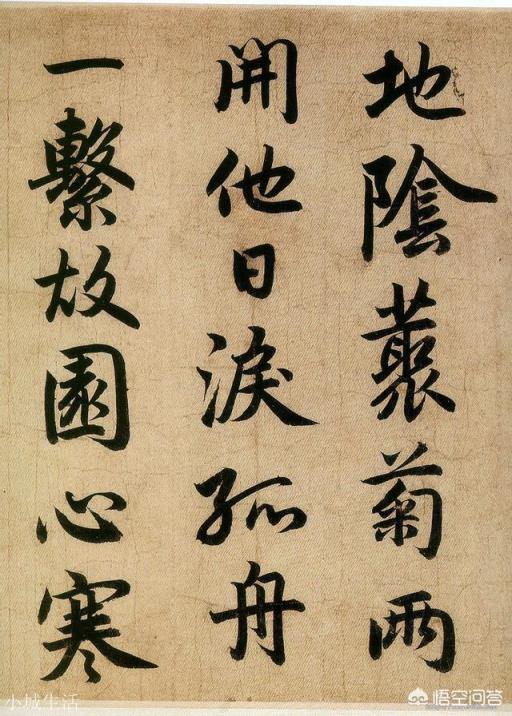 地陰藂菊兩
開他日淚孤舟
一繫故園心寒
小城生活
悟空问答